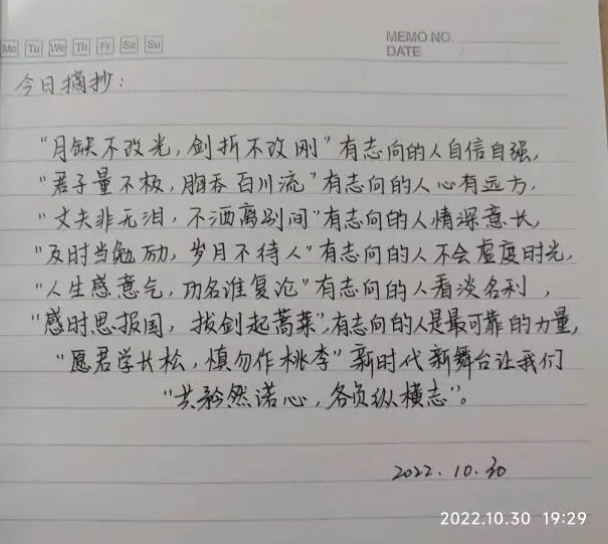 Mo Tu We Th Fr Sa Su
MEMO NO.
DATE
今日摘抄：
“月缺不改光，剑折不改刚”有志向的人自信自强，
“君子量不极，胸吞百川流”有志向的人心有远方，
“丈夫非无泪，不洒离别间”有志向的人情深意长，
“及时当勉励，岁月不待人”有志向的人不会虚度时光，
“人生感意气，功名谁复论”有志向的人看淡名利，
“感时思报国，拔剑起蒿莱”，有志向的人是最可靠的力量，
“愿君学长松，慎勿作桃李”新时代新舞台让我们
“共矜然诺心，各负纵横志”。
2022.10.30
2022.10.30 19:29